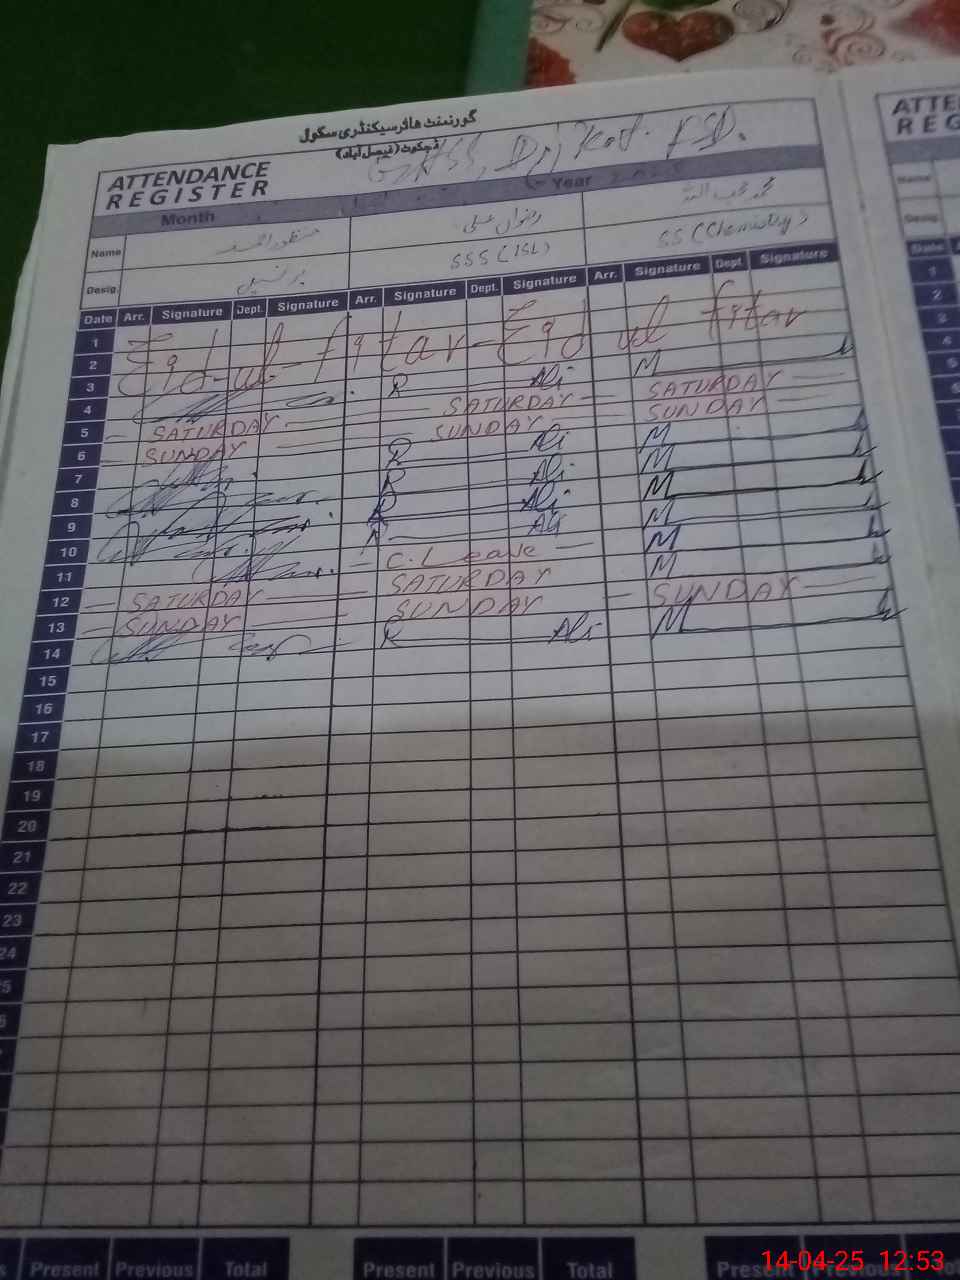 گورنمنٹ ہائر سیکنڈری سکول
ڈجکوٹ (فیصل آباد)
GHSS, Dijkot. FSD.
ATTENDANCE
REGISTER
Month Year
Name منظور احمد رضوان علی محمد محب اللہ
Desig. پرنسپل SSS (ISL) SS (Chemistry)
Date Arr. Signature Dept. Signature Arr. Signature Dept. Signature Arr. Signature Dept. Signature
1 Eid-ul-fitar-Eid ul fitar
2
3 R Ali M
4 SATURDAY SATURDAY
5 SATURDAY SUNDAY SUNDAY
6 SUNDAY R Ali M
7 R Ali M
8 R Ali M
9 R Ali M
10 C. Leave M
11 SATURDAY M
12 SATURDAY SUNDAY SUNDAY
13 SUNDAY R Ali M
14
15
16
17
18
19
20
21
22
23
24
Present Previous Total Present Previous Total Present Previous
ATTE
REG
Name
Desig.
Date
1
2
3
4
5
6
14-04-25 12:53